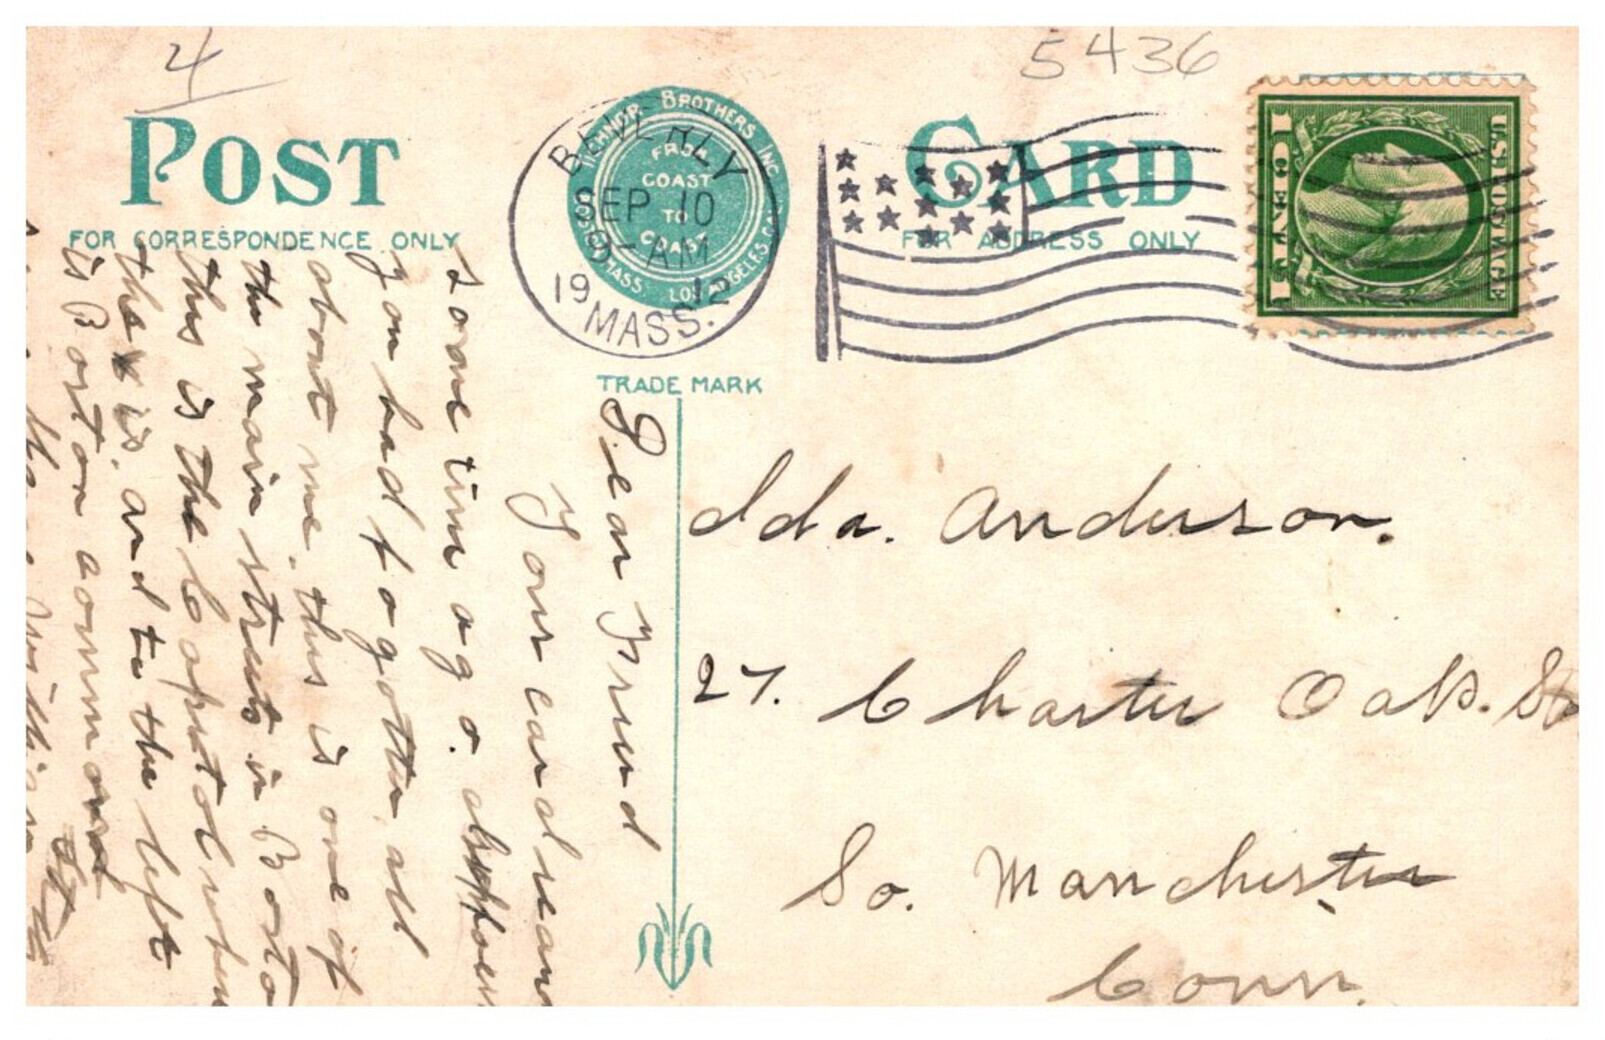 4
5436
POST CARD
FOR CORRESPONDENCE ONLY
FOR ADDRESS ONLY
TICHNOR BROTHERS INC.
BOSTON MASS. LOS ANGELES CAL.
FROM
COAST
TO
COAST
TRADE MARK
BEVERLY
SEP 10
9-AM
1912
MASS.
U.S. POSTAGE
1 CENT 1
Dear Friend
Your card rean
some time ago. I suppose
you had fogotten all
about me. this is one of
the main streets in Bosto
this is the Capitol when
the is. and to the left
is Boston common
Ida. Anderson.
27. Charter Oak. St
So. Manchester
Conn.